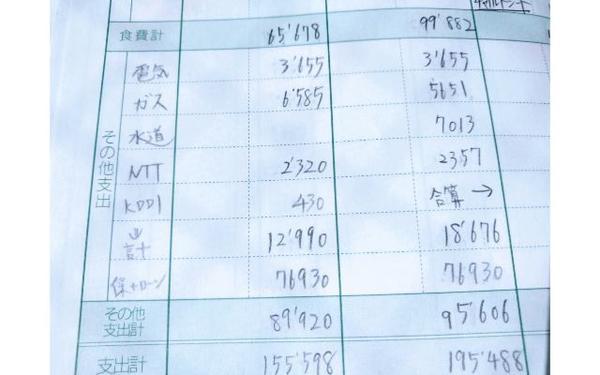 食費計 65'678 99'882
電気 3'655 3'655
ガス 6'585 5651
水道 7013
NTT 2'320 2357
KDDI 430 合算→
計 12'990 18'676
保+ローン 76930 76930
その他支出
その他支出計 89'920 95'606
支出計 155'598 195'488